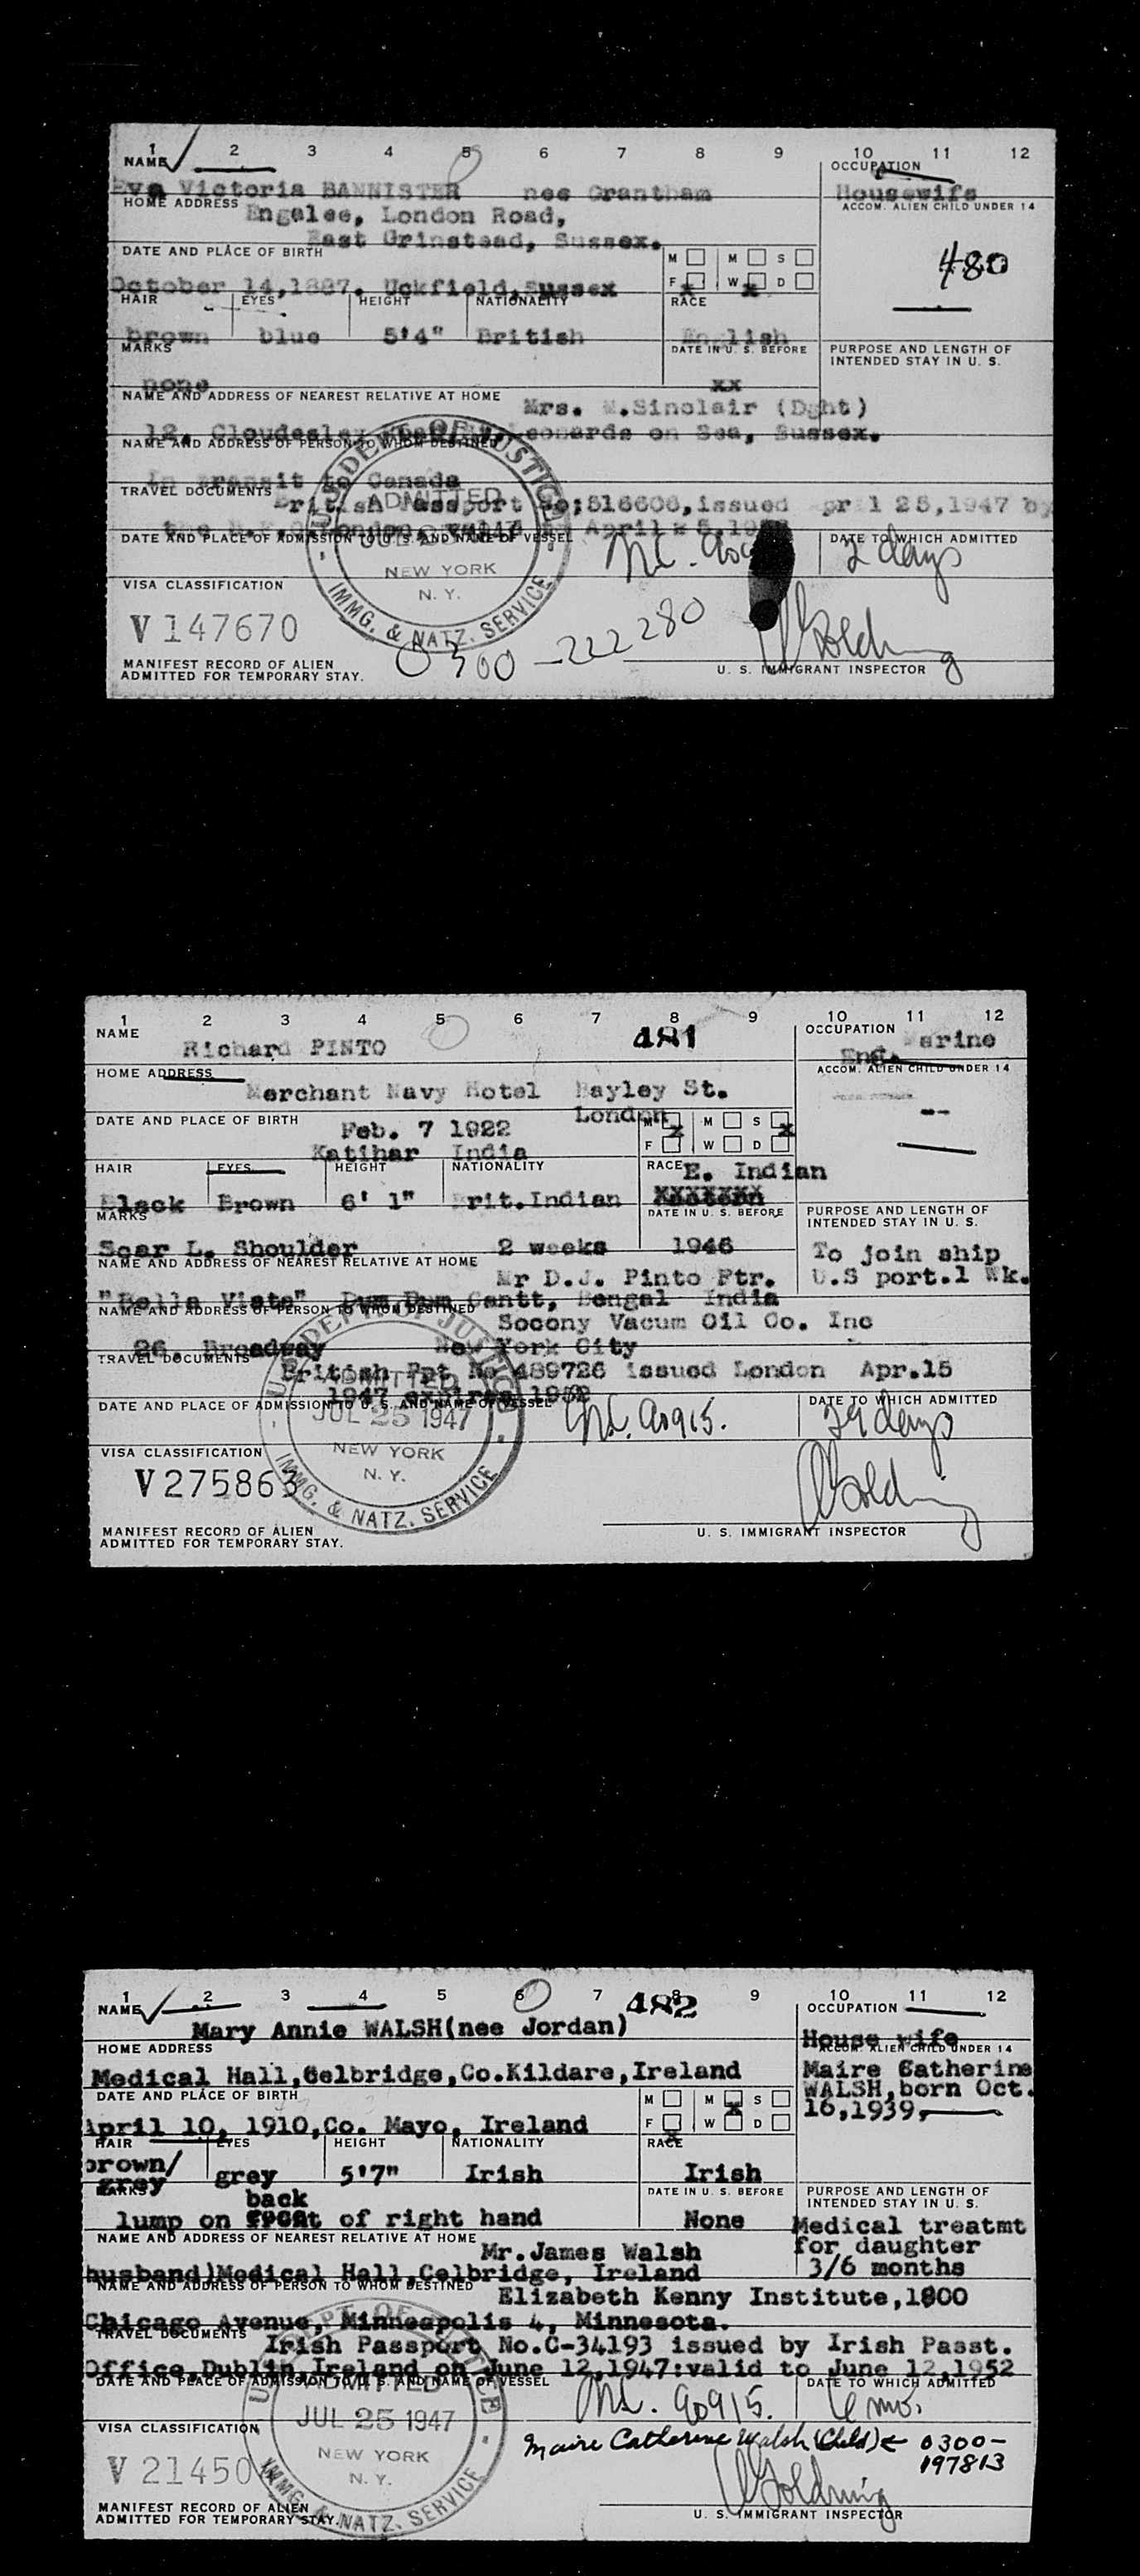 1 2 3 4 5 6 7 8 9 10 11 12
NAME
OCCUPATION
Eva Victoria BANNISTER nee Grantham
Housewife
HOME ADDRESS
ACCOM. ALIEN CHILD UNDER 14
Engalee, London Road,
East Grinstead, Sussex.
480
DATE AND PLACE OF BIRTH
M M S
F W D
x x
October 14,1887. Uckfield,Sussex
HAIR EYES HEIGHT NATIONALITY RACE
brown blue 5'4" British English
MARKS
DATE IN U. S. BEFORE
PURPOSE AND LENGTH OF
INTENDED STAY IN U. S.
none
xx
NAME AND ADDRESS OF NEAREST RELATIVE AT HOME
Mrs. M.Sinclair (Dght)
12, Cloudesley Leonards on Sea, Sussex.
NAME AND ADDRESS OF PERSON TO WHOM DESTINED
In transit to Canada
TRAVEL DOCUMENTS
British Passport No;516606,issued pr 1 25,1947 by
the London, April
DATE AND PLACE OF ADMISSION TO U. S. AND NAME OF VESSEL
DATE TO WHICH ADMITTED
2 days
U.S. DEPT. OF JUSTICE
ADMITTED
NEW YORK
N. Y.
IMMG. & NATZ. SERVICE
VISA CLASSIFICATION
V 147670
0300-222280
MANIFEST RECORD OF ALIEN
ADMITTED FOR TEMPORARY STAY.
Golding
U. S. IMMIGRANT INSPECTOR
1 2 3 4 5 6 7 8 9 10 11 12
481
NAME
Richard PINTO
OCCUPATION
Marine
Eng.
HOME ADDRESS
ACCOM. ALIEN CHILD UNDER 14
Merchant Navy Hotel Bayley St.
London
DATE AND PLACE OF BIRTH
Feb. 7 1922
Katihar India
M M S
F W D
x x
HAIR EYES HEIGHT NATIONALITY RACE
E. Indian
Black Brown 6' 1" Brit.Indian
MARKS
DATE IN U. S. BEFORE
PURPOSE AND LENGTH OF
INTENDED STAY IN U. S.
Scar L. Shoulder 2 weeks 1946
To join ship
U.S port.1 Wk.
NAME AND ADDRESS OF NEAREST RELATIVE AT HOME
Mr D.J. Pinto Ftr.
"Bella Vista" Dum Dum Cantt, Bengal India
NAME AND ADDRESS OF PERSON TO WHOM DESTINED
Socony Vacum Oil Co. Inc
26, Broadway New York City
TRAVEL DOCUMENTS
British Ppt No 489726 issued London Apr.15
1947 expires 1952
DATE AND PLACE OF ADMISSION TO U. S. AND NAME OF VESSEL
DATE TO WHICH ADMITTED
N.C. 90915.
29 days
U.S. DEPT. OF JUSTICE
ADMITTED
JUL 25 1947
NEW YORK
N. Y.
IMMG. & NATZ. SERVICE
VISA CLASSIFICATION
V 275863
MANIFEST RECORD OF ALIEN
ADMITTED FOR TEMPORARY STAY.
Golding
U. S. IMMIGRANT INSPECTOR
1 2 3 4 5 6 7 8 9 10 11 12
482
NAME
Mary Annie WALSH(nee Jordan)
OCCUPATION
House wife
HOME ADDRESS
ACCOM. ALIEN CHILD UNDER 14
Medical Hall,Celbridge,Co.Kildare,Ireland
Maire Catherine
WALSH,born Oct.
16,1939,
DATE AND PLACE OF BIRTH
April 10, 1910,Co. Mayo, Ireland
M M S
F W D
x x
HAIR EYES HEIGHT NATIONALITY RACE
brown/
grey grey 5'7" Irish Irish
MARKS
DATE IN U. S. BEFORE
PURPOSE AND LENGTH OF
INTENDED STAY IN U. S.
back
lump on front of right hand None
Medical treatmt
for daughter
3/6 months
NAME AND ADDRESS OF NEAREST RELATIVE AT HOME
Mr.James Walsh
husband)Medical Hall,Celbridge, Ireland
NAME AND ADDRESS OF PERSON TO WHOM DESTINED
Elizabeth Kenny Institute,1800
Chicago Avenue, Minneapolis 4, Minnesota.
TRAVEL DOCUMENTS
Irish Passport No.C-34193 issued by Irish Passt.
Office,Dublin,Ireland on June 12,1947:valid to June 12,1952
DATE AND PLACE OF ADMISSION TO U. S. AND NAME OF VESSEL
DATE TO WHICH ADMITTED
N.C. 90915.
6 mo.
U.S. DEPT. OF JUSTICE
ADMITTED
JUL 25 1947
NEW YORK
N. Y.
IMMG. & NATZ. SERVICE
VISA CLASSIFICATION
V 21450
Maire Catherine Walsh (Child) ← 0300-
197813
MANIFEST RECORD OF ALIEN
ADMITTED FOR TEMPORARY STAY.
Golding
U. S. IMMIGRANT INSPECTOR